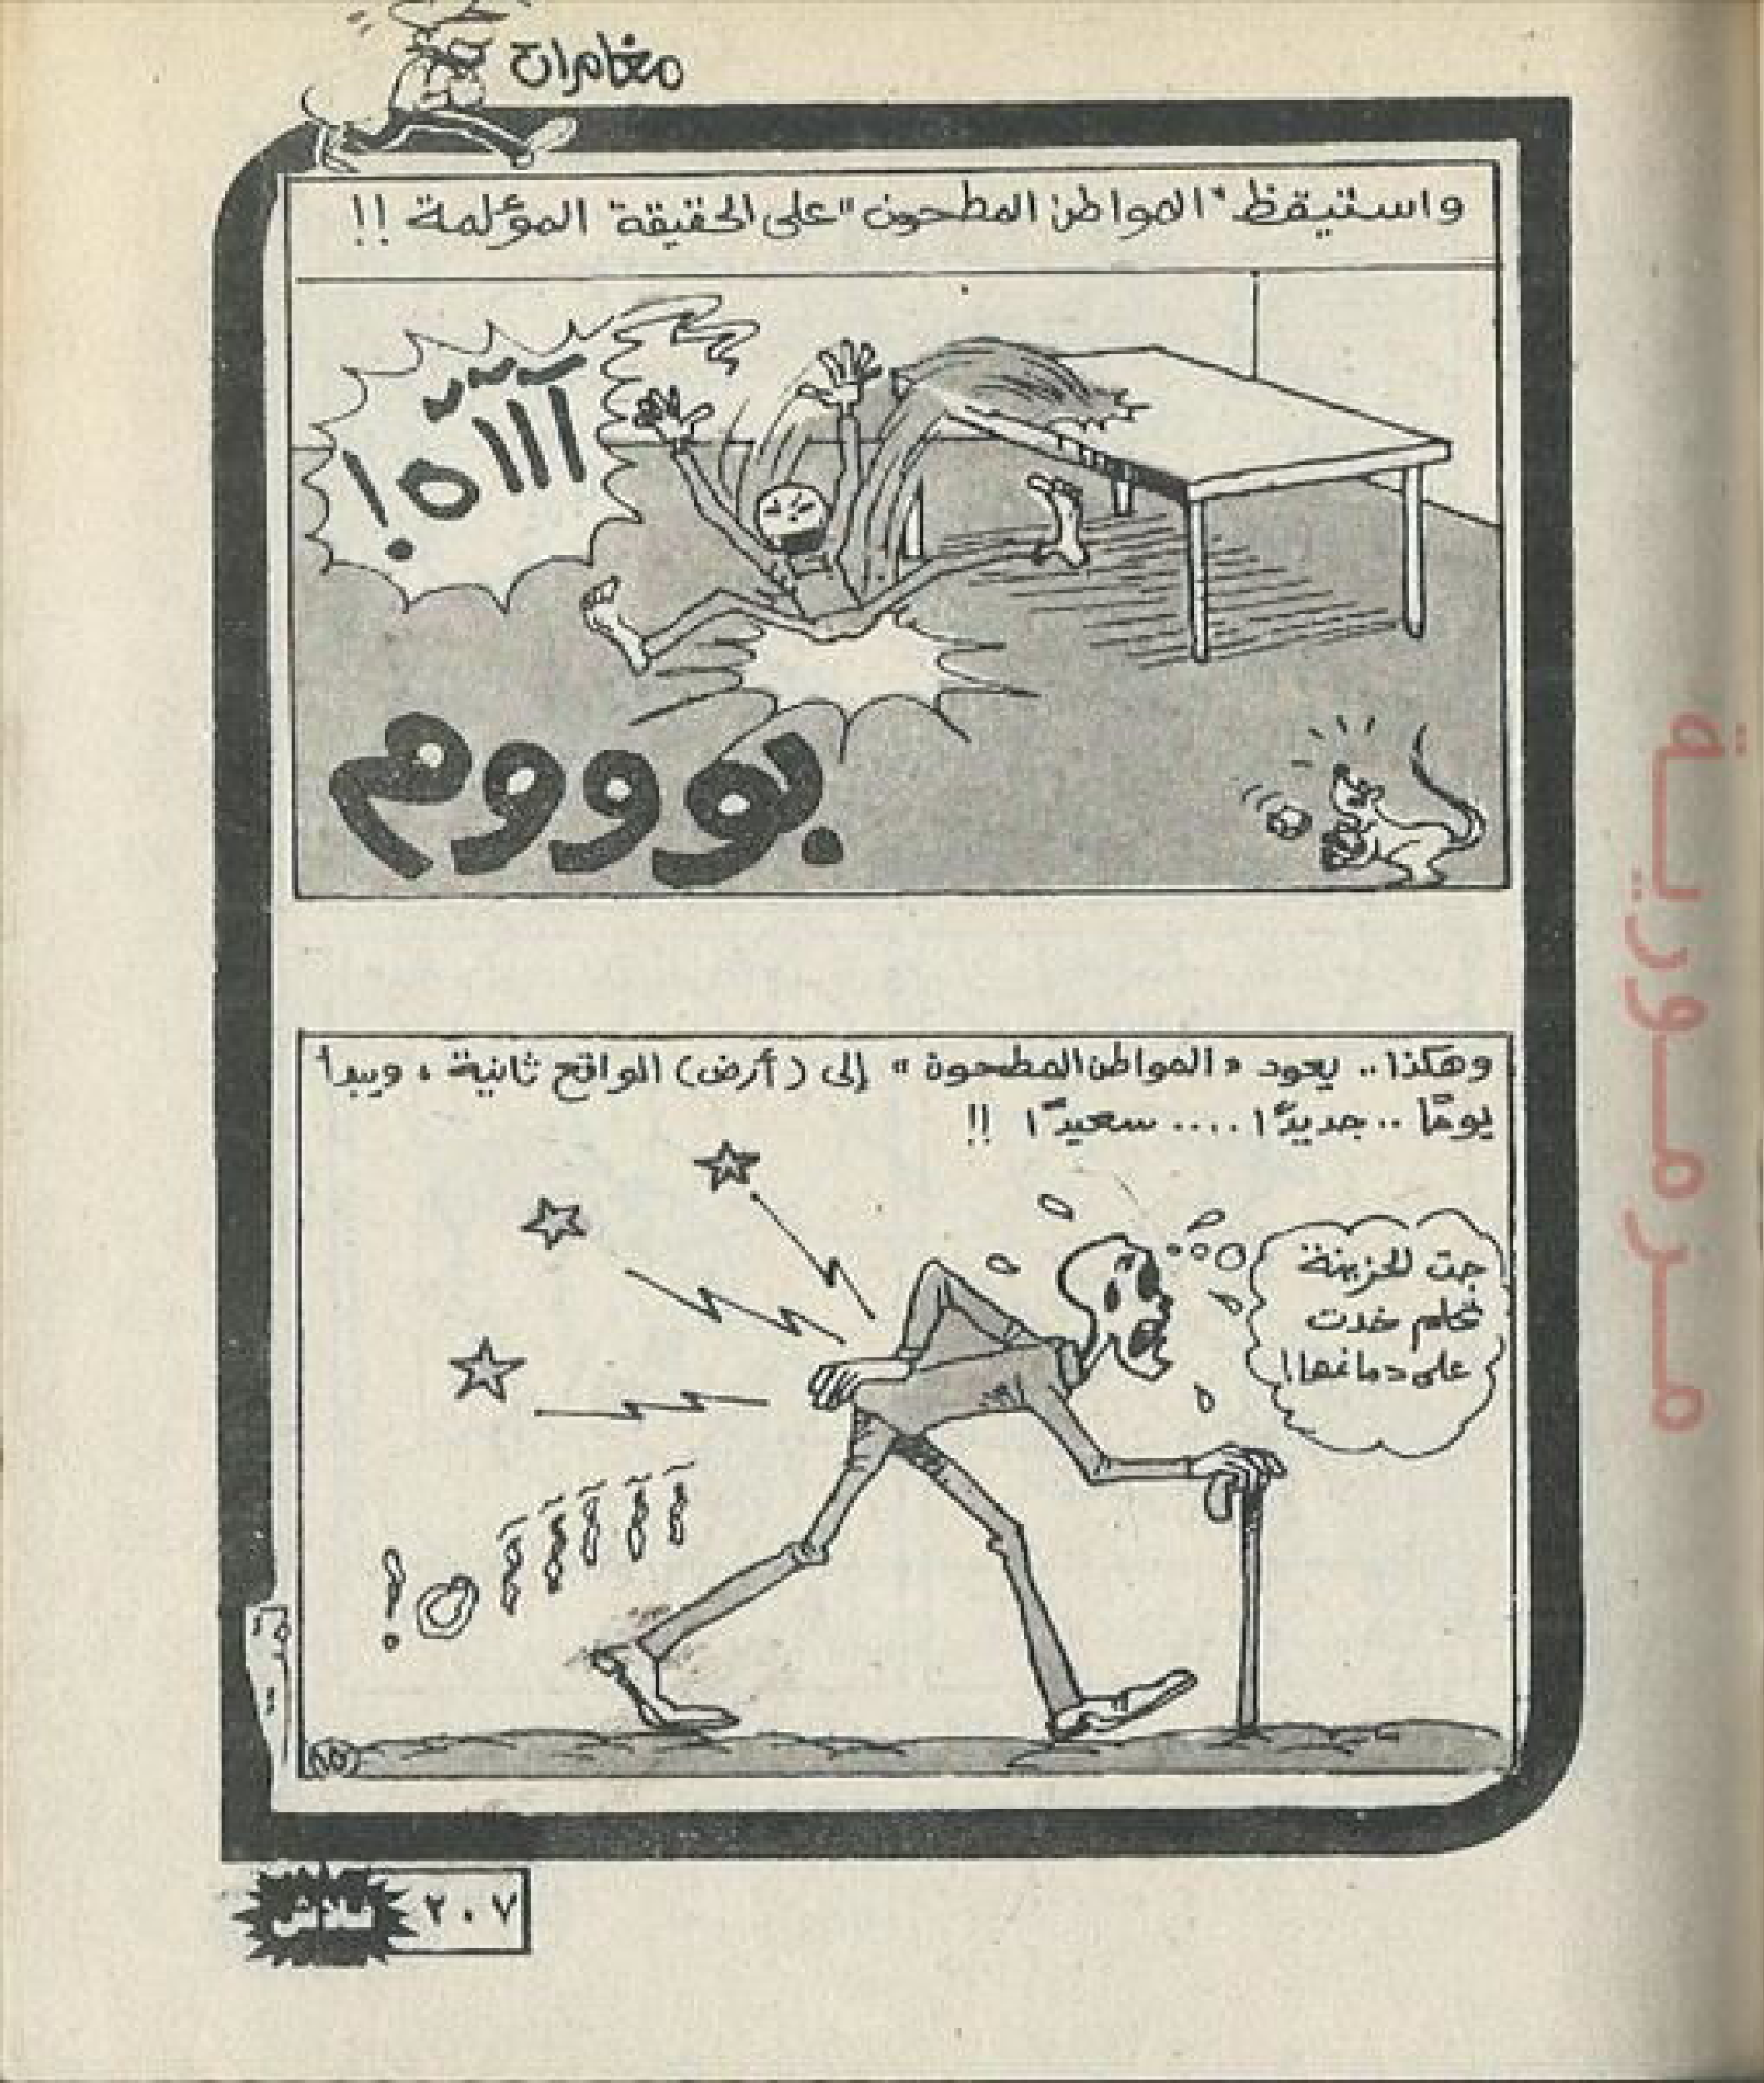 مغامرات
واستيقظ "المواطن المطحون" على الحقيقة المؤلمة !!
آآآه !
بوووم
وهكذا .. يعود « المواطن المطحون » إلى (أرض) الواقع ثانية ، ويبدأ
يومًا .. جديدًا .... سعيدًا !!
جت الحزينة
تحلم خدت
على دماغها !
آآآآآه !
١٥
فلاش ٢٠٧
مرمورية